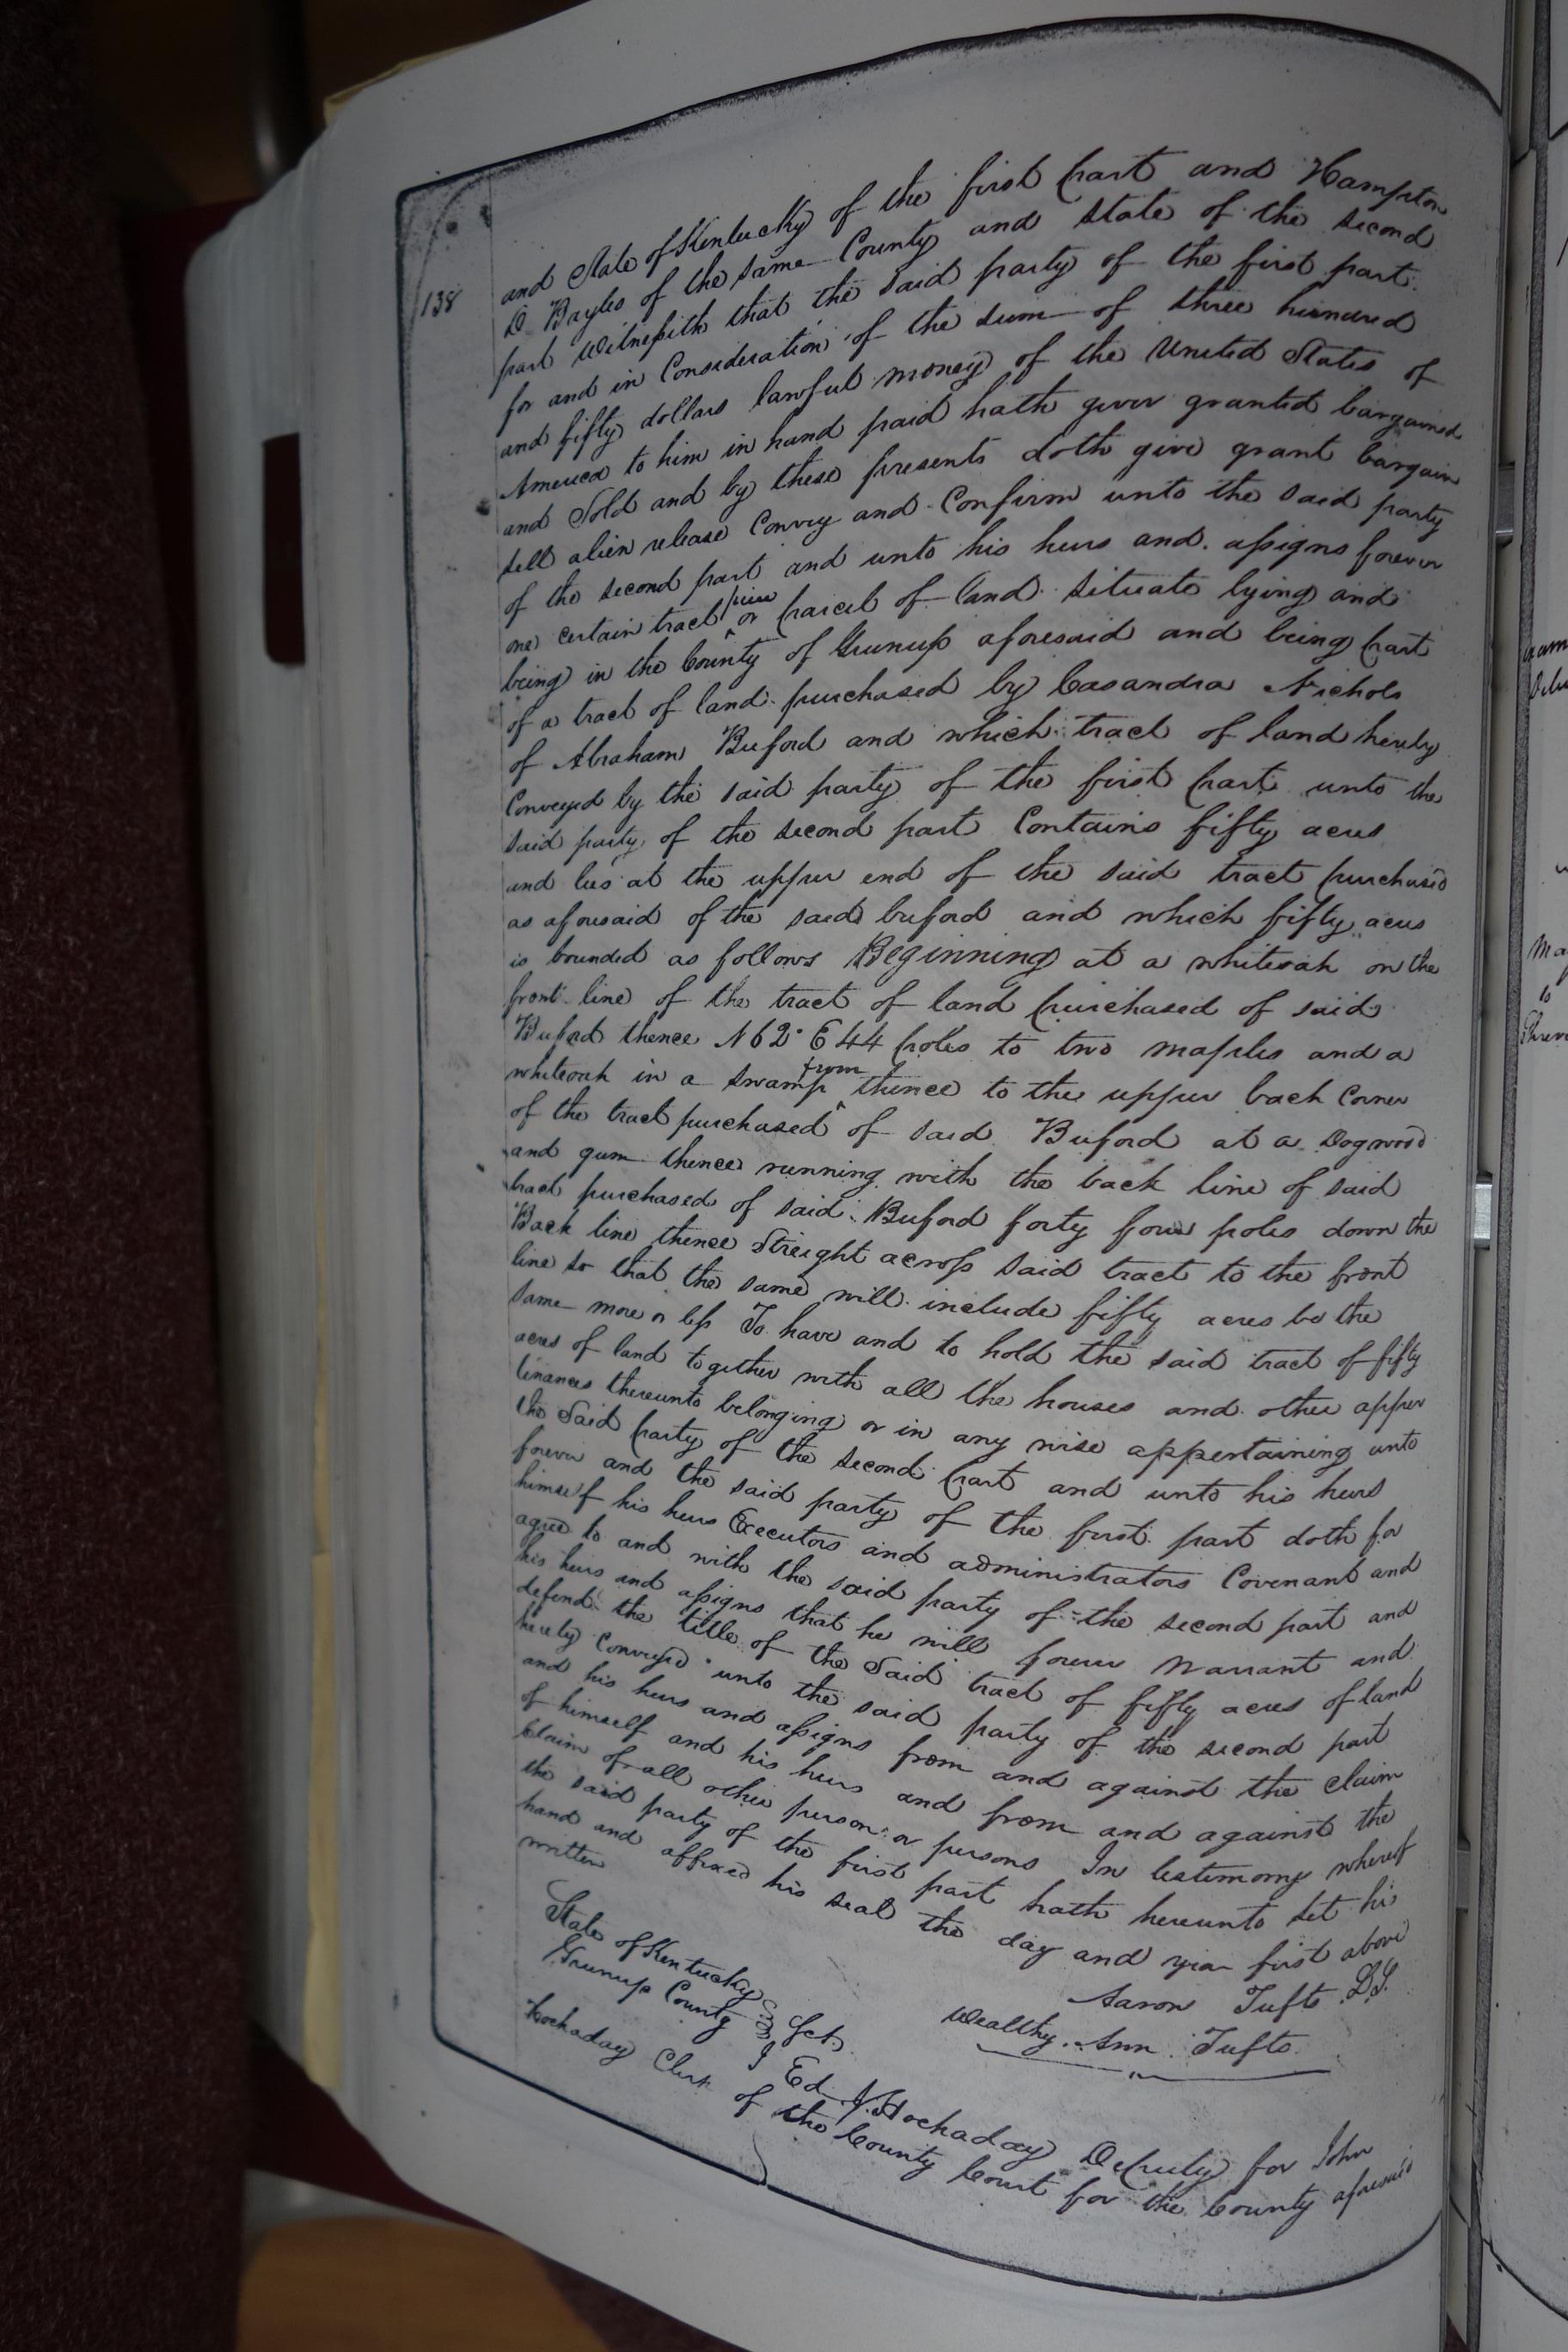 138
and State of Kentucky of the first part and Hampton
D Bayles of the same County and state of the second
part Witnesseth that the said party of the first part
for and in Consideration of the sum of three hundred
and fifty dollars lawful money of the United States of
America to him in hand paid hath given granted bargained
and Sold and by these presents doth give grant bargain
sell alien release Convey and Confirm unto the said party
of the second part and unto his heirs and assigns forever
one certain tract piece or parcel of land situate lying and
being in the County of Greenup aforesaid and being part
of a tract of land purchased by Casandra Nichols
of Abraham Buford and which tract of land hereby
Conveyed by the said party of the first part unto the
said party of the second part Contains fifty acres
and lies at the upper end of the said tract purchased
as aforesaid of the said buford and which fifty acres
is bounded as follows Beginning at a whiteoak on the
front line of the tract of land purchased of said
Buford thence N 62° E 44 poles to two maples and a
whiteoak in a swamp from thence to the upper back Corner
of the tract purchased of said Buford at a Dogwood
and gum thence running with the back line of said
tract purchased of said Buford forty four poles down the
Back line thence Streight across said tract to the front
line so that the same will include fifty acres be the
same more or less To have and to hold the said tract of fifty
acres of land together with all the houses and other appur
tinances thereunto belonging or in any wise appertaining unto
the Said party of the second part and unto his heirs
forever and the said party of the first part doth for
himself his heirs Executors and administrators Covenant and
agree to and with the said party of the second part and
his heirs and assigns that he will forever Warrant and
defend the title of the Said tract of fifty acres of land
hereby conveyed unto the said party of the second part
and his heirs and assigns from and against the claim
of himself and his heirs and from and against the
Claim of all other person or persons In testimony whereof
the said party of the first part hath hereunto set his
hand and affixed his seal the day and year first above
written
Aaron Tufts LS
Wealthy Ann Tufts
State of Kentucky
Greenup County Sct
I Ed. J. Hockaday Deputy for John
Hockaday Clerk of the County Court for the County aforesaid